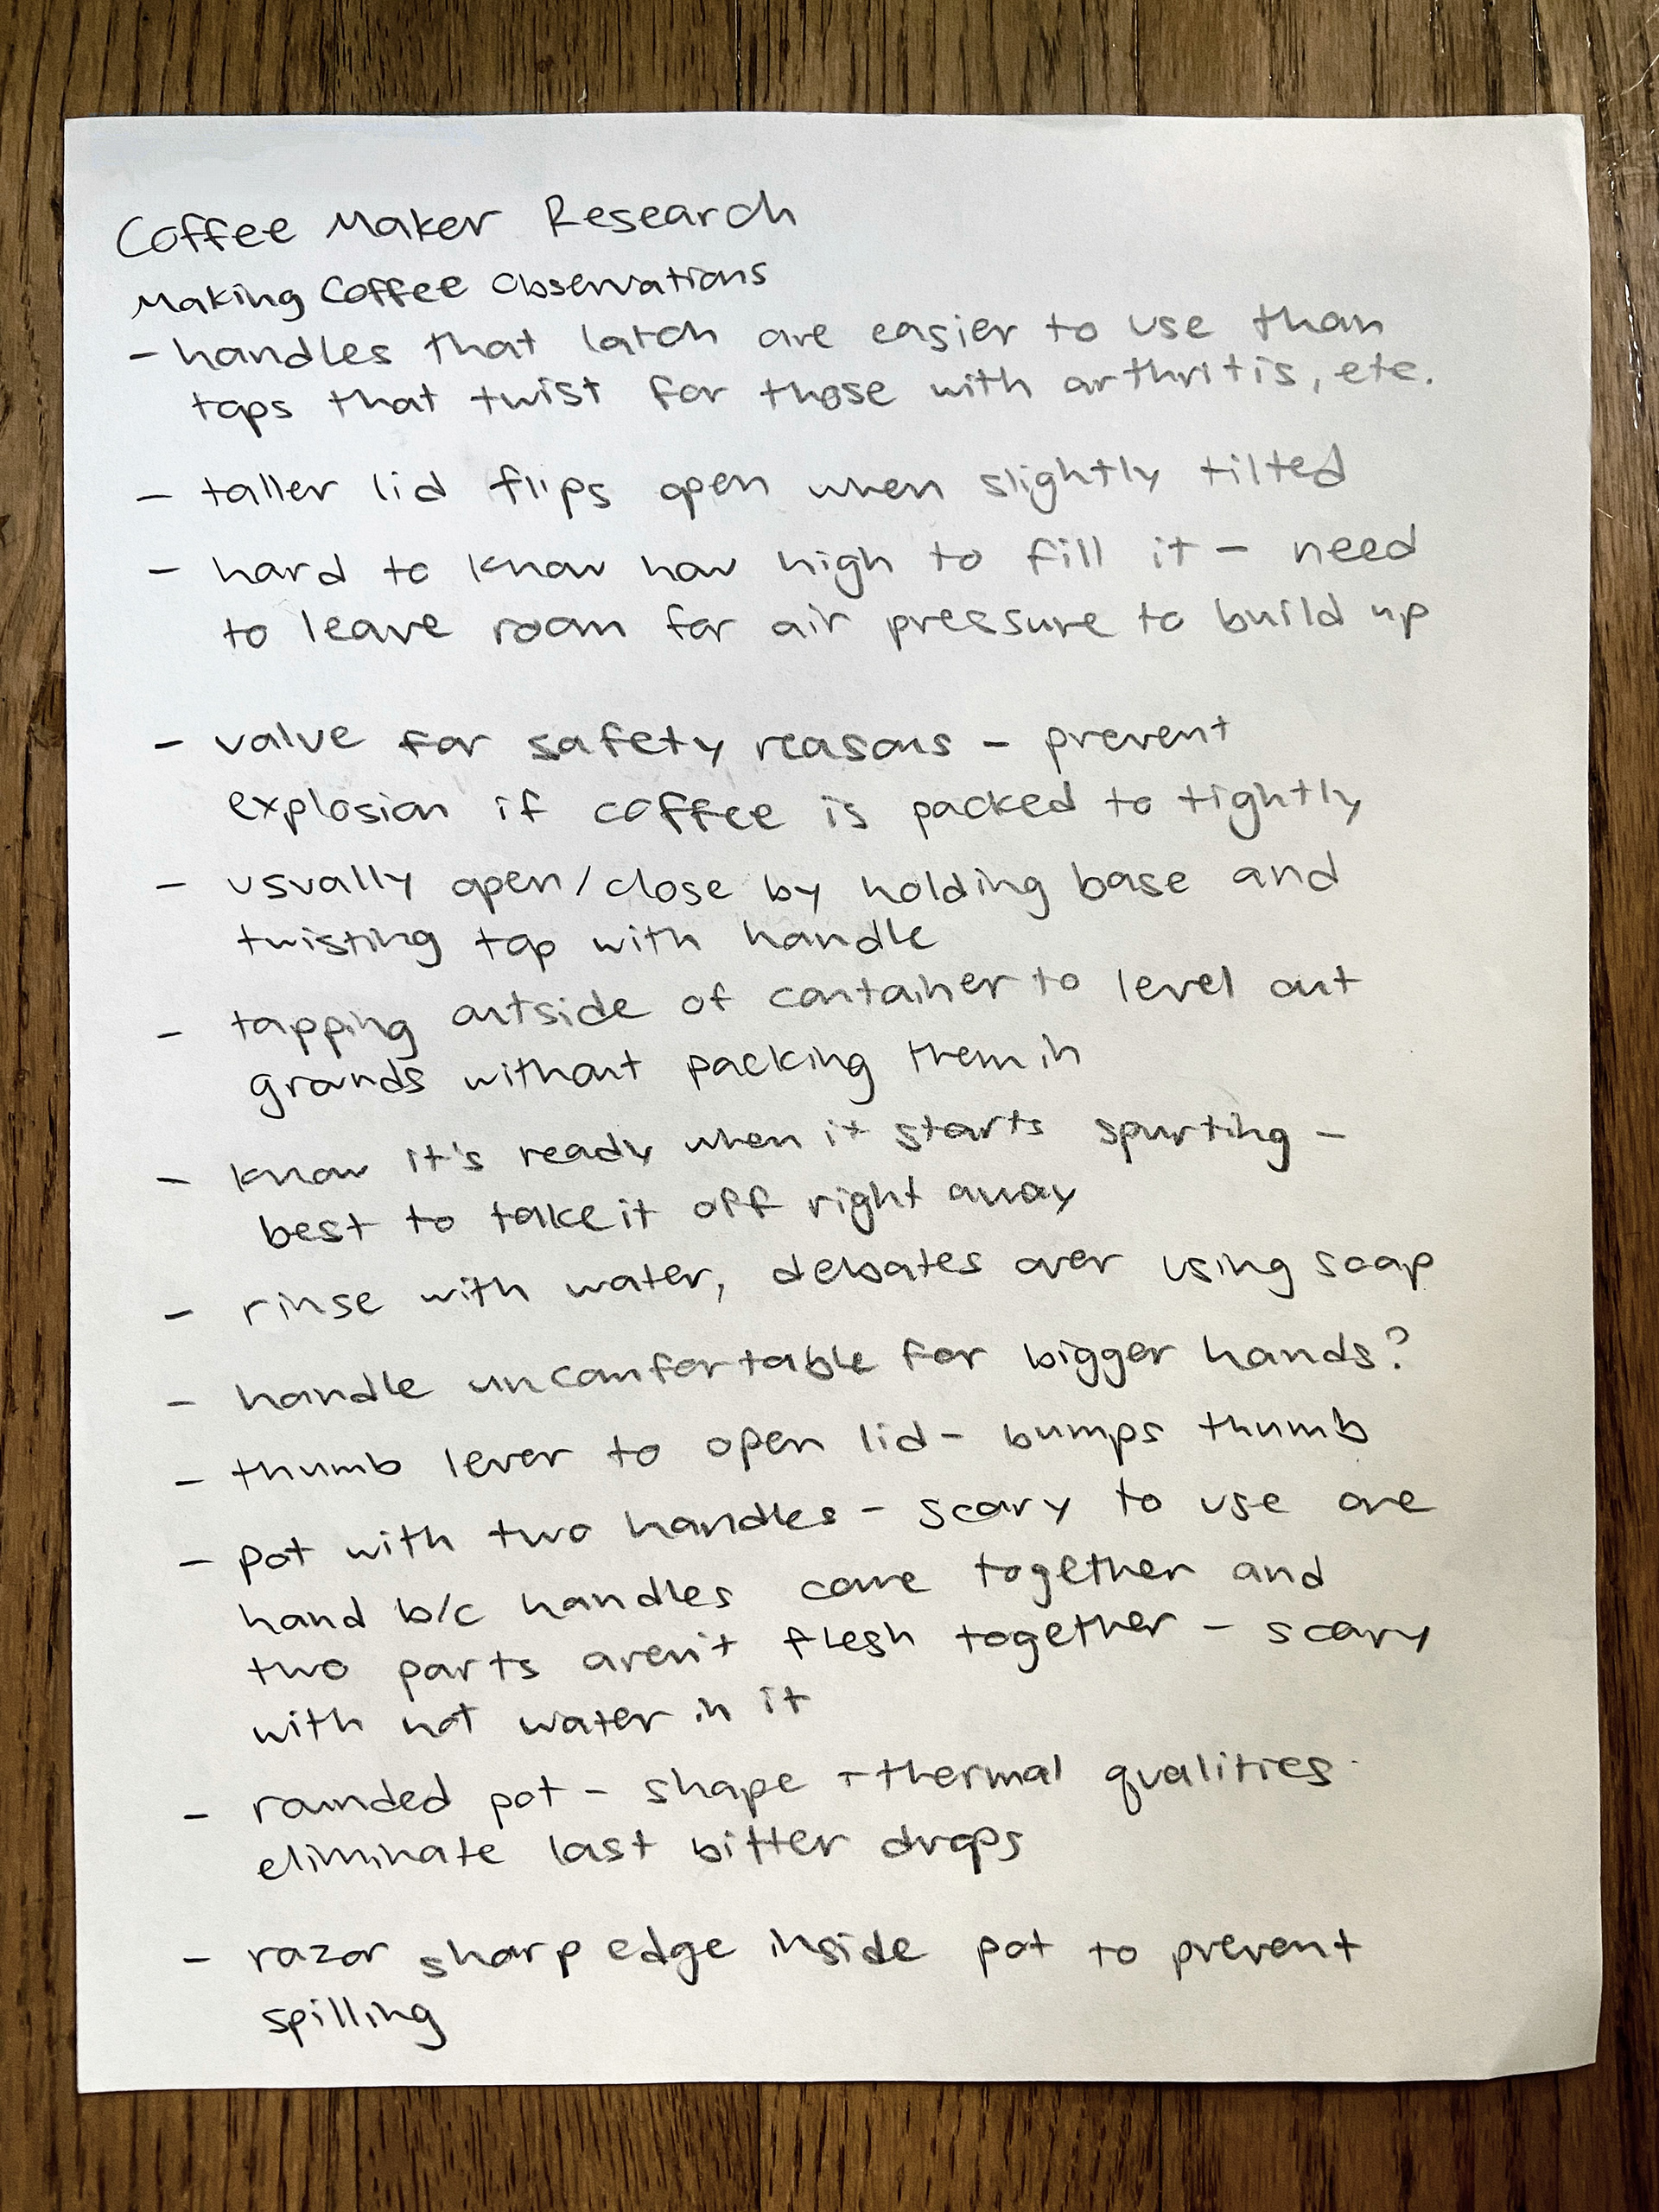 Coffee Maker Research
Making Coffee Observations
- handles that latch are easier to use than
tops that twist for those with arthritis, etc.
- taller lid flips open when slightly tilted
- hard to know how high to fill it - need
to leave room for air pressure to build up
- valve for safety reasons - prevent
explosion if coffee is packed to tightly
- usually open/close by holding base and
twisting top with handle
- tapping outside of container to level out
grounds without packing them in
- know it's ready when it starts spurting -
best to take it off right away
- rinse with water, debates over using soap
- handle uncomfortable for bigger hands?
- thumb lever to open lid - bumps thumb
- pot with two handles - scary to use one
hand b/c handles come together and
two parts aren't flesh together - scary
with hot water in it
- rounded pot - shape + thermal qualities
eliminate last bitter drops
- razor sharp edge inside pot to prevent
spilling